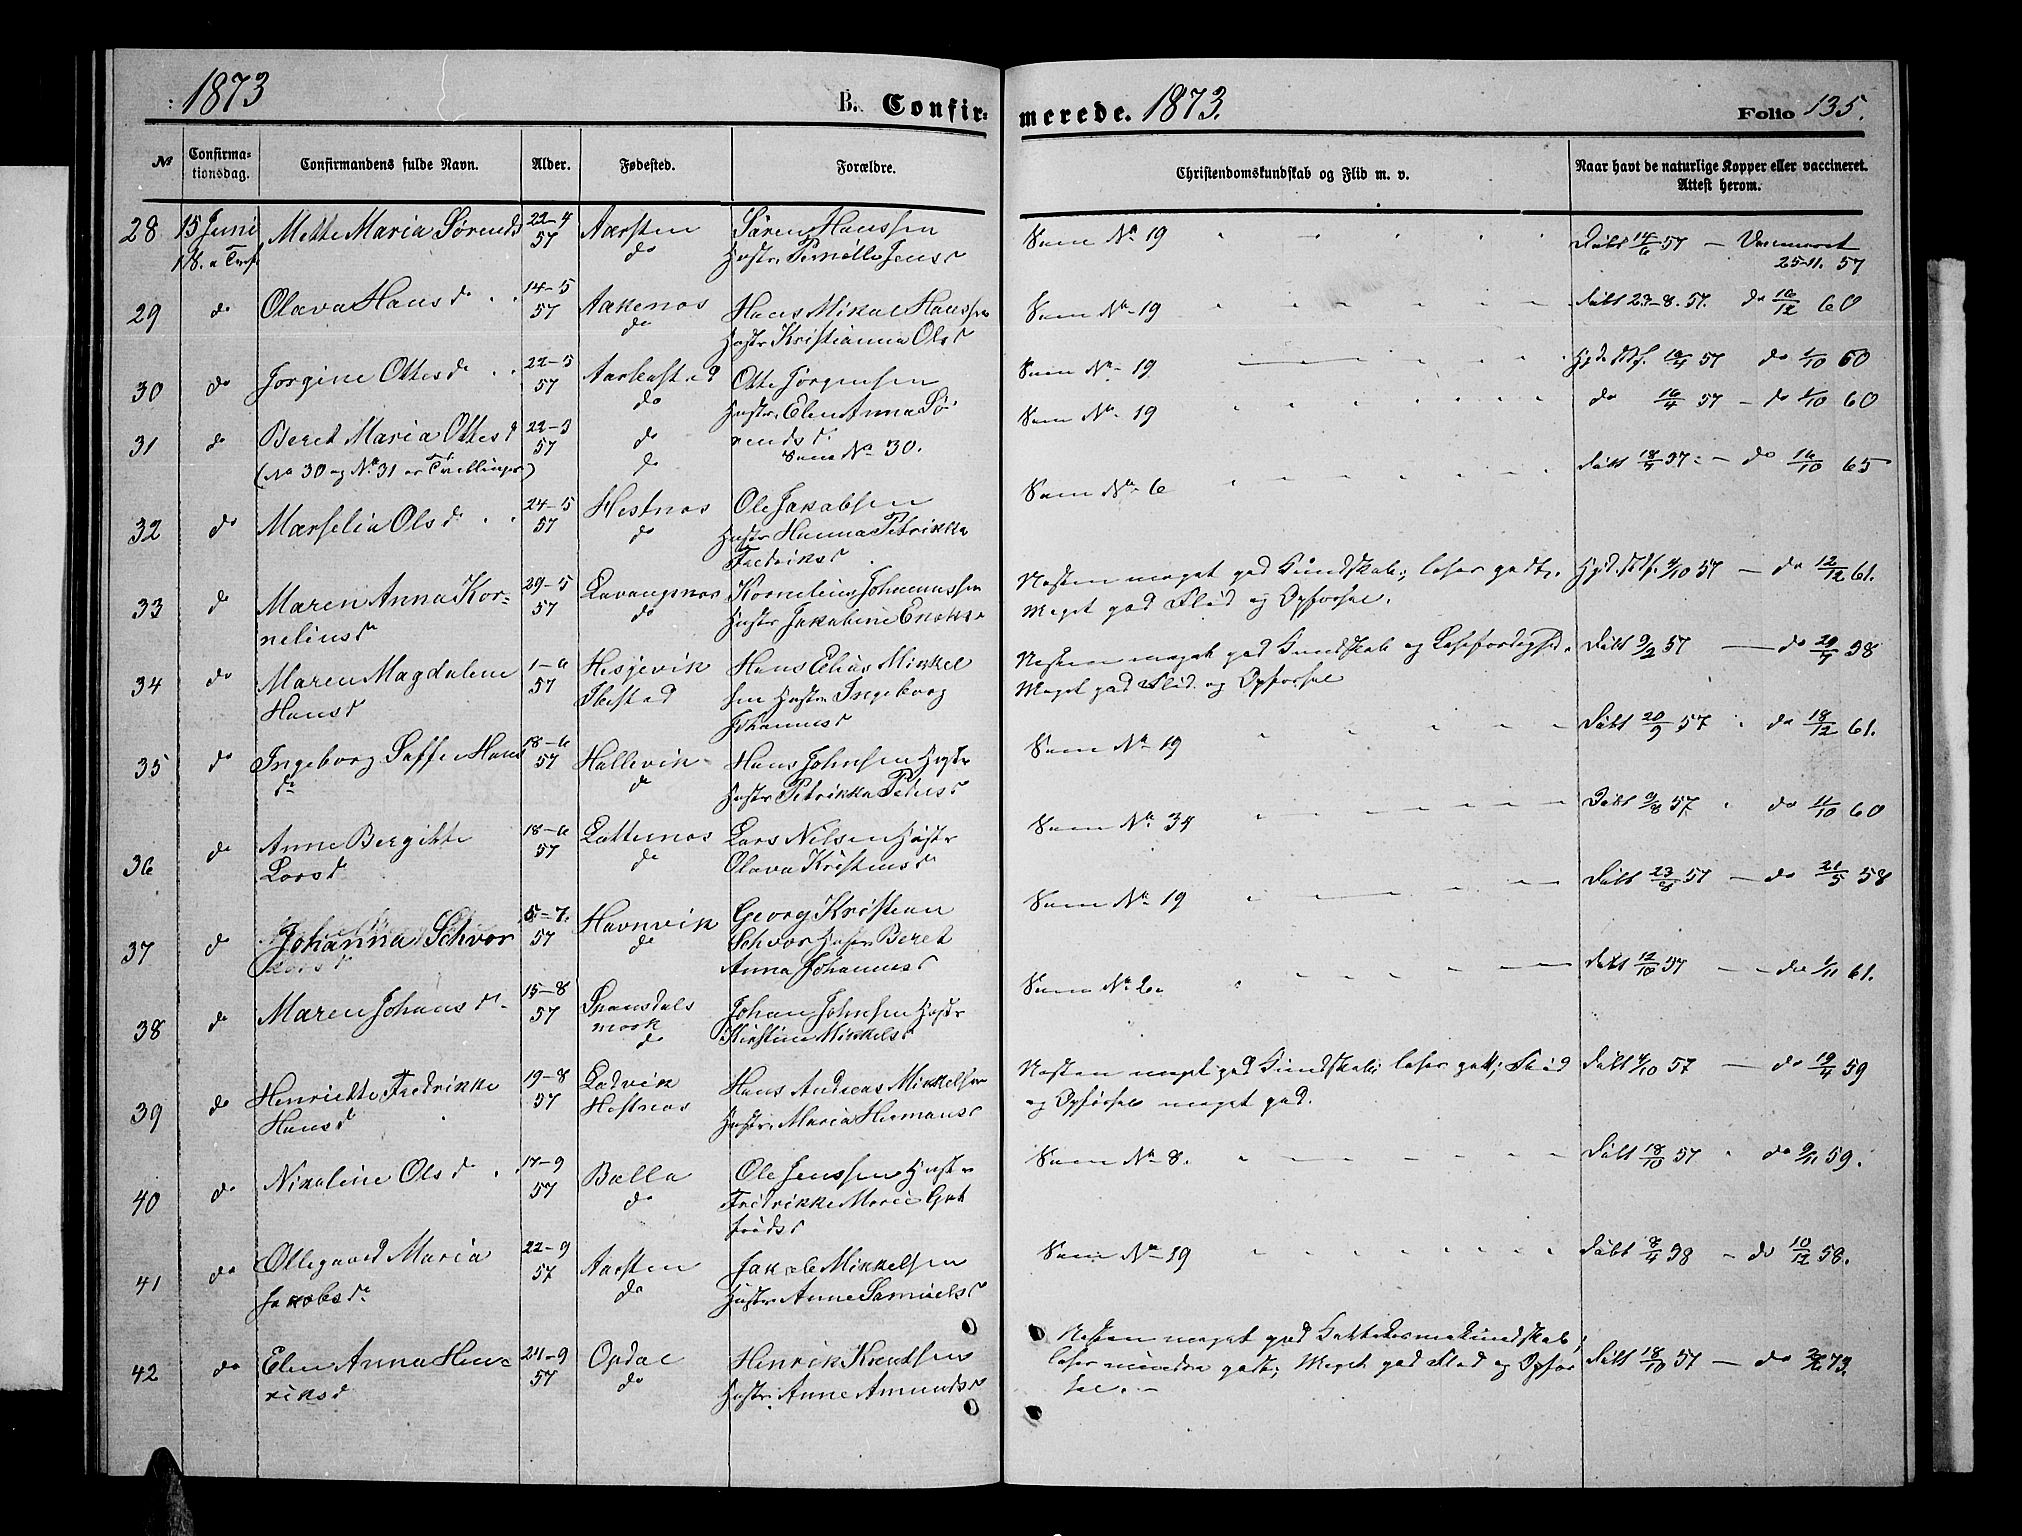 1873
B. Confir-
merede. 1873.
Folio 135.
No
Confirma-
tionsdag.
Confirmandens fulde Navn.
Alder.
Fødested.
Forældre.
Christendomskundskab og Flid m. v.
Naar havt de naturlige Kopper eller vaccineret.
Attest herom.
28 15 Juni Mette Maria Sørensd 22-4 57 Aarsten do Søren Hanssen
Hustr. Pernille Jensd
Som No 19 Døbt 14/6 57 — Vaccineret
25-11. 57
29 do Olava Hansd 14-5 57 Aakenes do Hans Mikal Hanssen
Hustr Kristianna Olsd
Som No 19 Døbt 23-8. 57. do 16/12 60
30 do Jorgine Ottesd 22-3 57 do Otte Jørgensen
Hustr. Elen Anna Sø-
rensd.
Som No 19 57 do 1/10 60
31 do Beret Maria Ottesd 22-3 57 do do Som No 30.
(No 30 og No 31 er Tvillinger)
Som No 19 do 16/4 57 — do 1/10 60
32 do Marselia Olsd 24-5 57 Hestnes do Ole Jakobsen
Hustr Hanna Petrikka
Fredriksd
Som No 6 Døbt 57 — do 16/10 65
33 do Maren Anna Kor-
neliusd 29-5 57 Lavangsnes do Kornelius Johannessen
Hustr Jakobine Enoksd
Næsten meget god Kundskab; læser godt.
Meget god Flid og Opførsel.
57 — do 12/12 61.
34 do Maren Magdalene
Hansd 1-6 57 Hesjevik Ibestad Hans Elias Mikkel
sen Hustr Ingeborg
Johannesd
Næsten meget god Kundskab og Læsefærdighed.
Meget god Flid og Opførsel
Døbt 9/2 57 — do 58
35 do Ingeborg Hans
d 18-6 57 Hallevik do Hans Johnsen Hustr
Hustr Petrikka Pedersd
Som No 19 Døbt 20/9 57 do 18/12 61.
36 do Anne Bergitte
Larsd 18-6 57 do Lars Nilsen Hustr
Olava Kristensd
Som No 34 Døbt 9/8 57. do 11/10 60
37 do Johanna Schvor 5-7. 57 Havnvik do Georg Kristian
Schvor Hustr Beret
Anna Johannesd
Som No 19 Døbt 23/8 57 — do 21/5 58
38 do Maren Johansd 15-8 57 Spansdals
mark do Johan Johnsen Hustr
Kirstine Mikkelsd
Som No Døbt 12/10 57 — do 1/11 61.
39 do Henrikke Fredrikke
Hansd 19-8 57 Lodvik
Hestnes Hans Andreas Mikkelsen
Hustr. Maria Hermansd
Næsten meget god Kundskab; læser godt; Flid
og Opførsel meget god.
Døbt 4/10 57 — do 19/4 59
40 do Nikoline Olsd 17-9 57 Balla do Ole Jenssen Hustr
Fredrikke Marie Got
frædsd
Som No 8. Døbt 18/10 57 do 9/11 59.
41 do Ollegaard Maria
Jakobsd 22-9 57 Aarsten do Jakob Mikkelsen
Hustr. Anne Samuelsd
Som No 19 Døbt 8/4 58 — do 10/12 58.
42 do Elen Anna Hen-
riksd 24-9 57 Opdal do Henrik Knudsen
Hustr. Anne Amundsd
Næsten meget god
læser mindre godt; Meget god Flid og Opfør
sel. —
Døbt 18/10 57 — do 73.